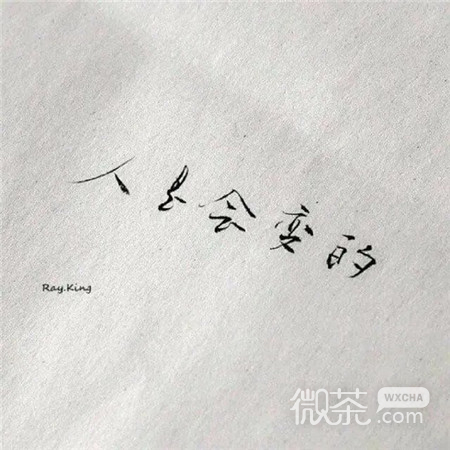 人是会变的
Ray.King
微茶
WXCHA